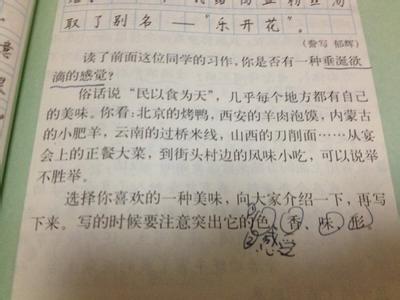 取了别名——“乐开花”。
（誊写 郁辉）
读了前面这位同学的习作，你是否有一种垂涎欲
滴的感觉？
俗话说“民以食为天”，几乎每个地方都有自己
的美味。你看：北京的烤鸭，西安的羊肉泡馍，内蒙古
的小肥羊，云南的过桥米线，山西的刀削面……从宴
会上的正餐大菜，到街头村边的风味小吃，可以说举
不胜举。
选择你喜欢的一种美味，向大家介绍一下，再写
下来。写的时候要注意突出它的色、香、味、形。
②感觉